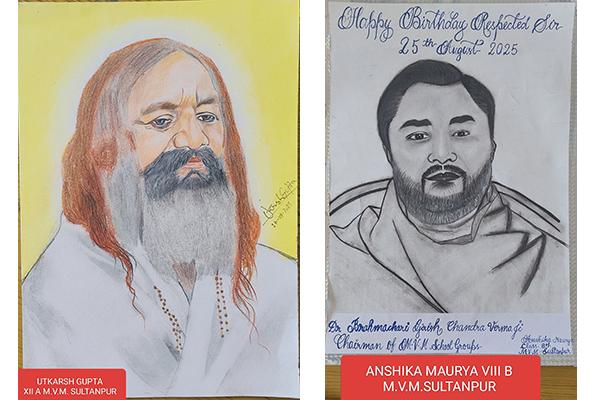 UTKARSH GUPTA
XII A M.V.M. SULTANPUR
Happy Birthday Respected Sir
25th August 2025
Dr Brahmachari Girish Chandra Verma Ji
Chairman of M.V.M. School Groups
Anshika Maurya
Class 8th
M.V.M. Sultanpur
ANSHIKA MAURYA VIII B
M.V.M.SULTANPUR